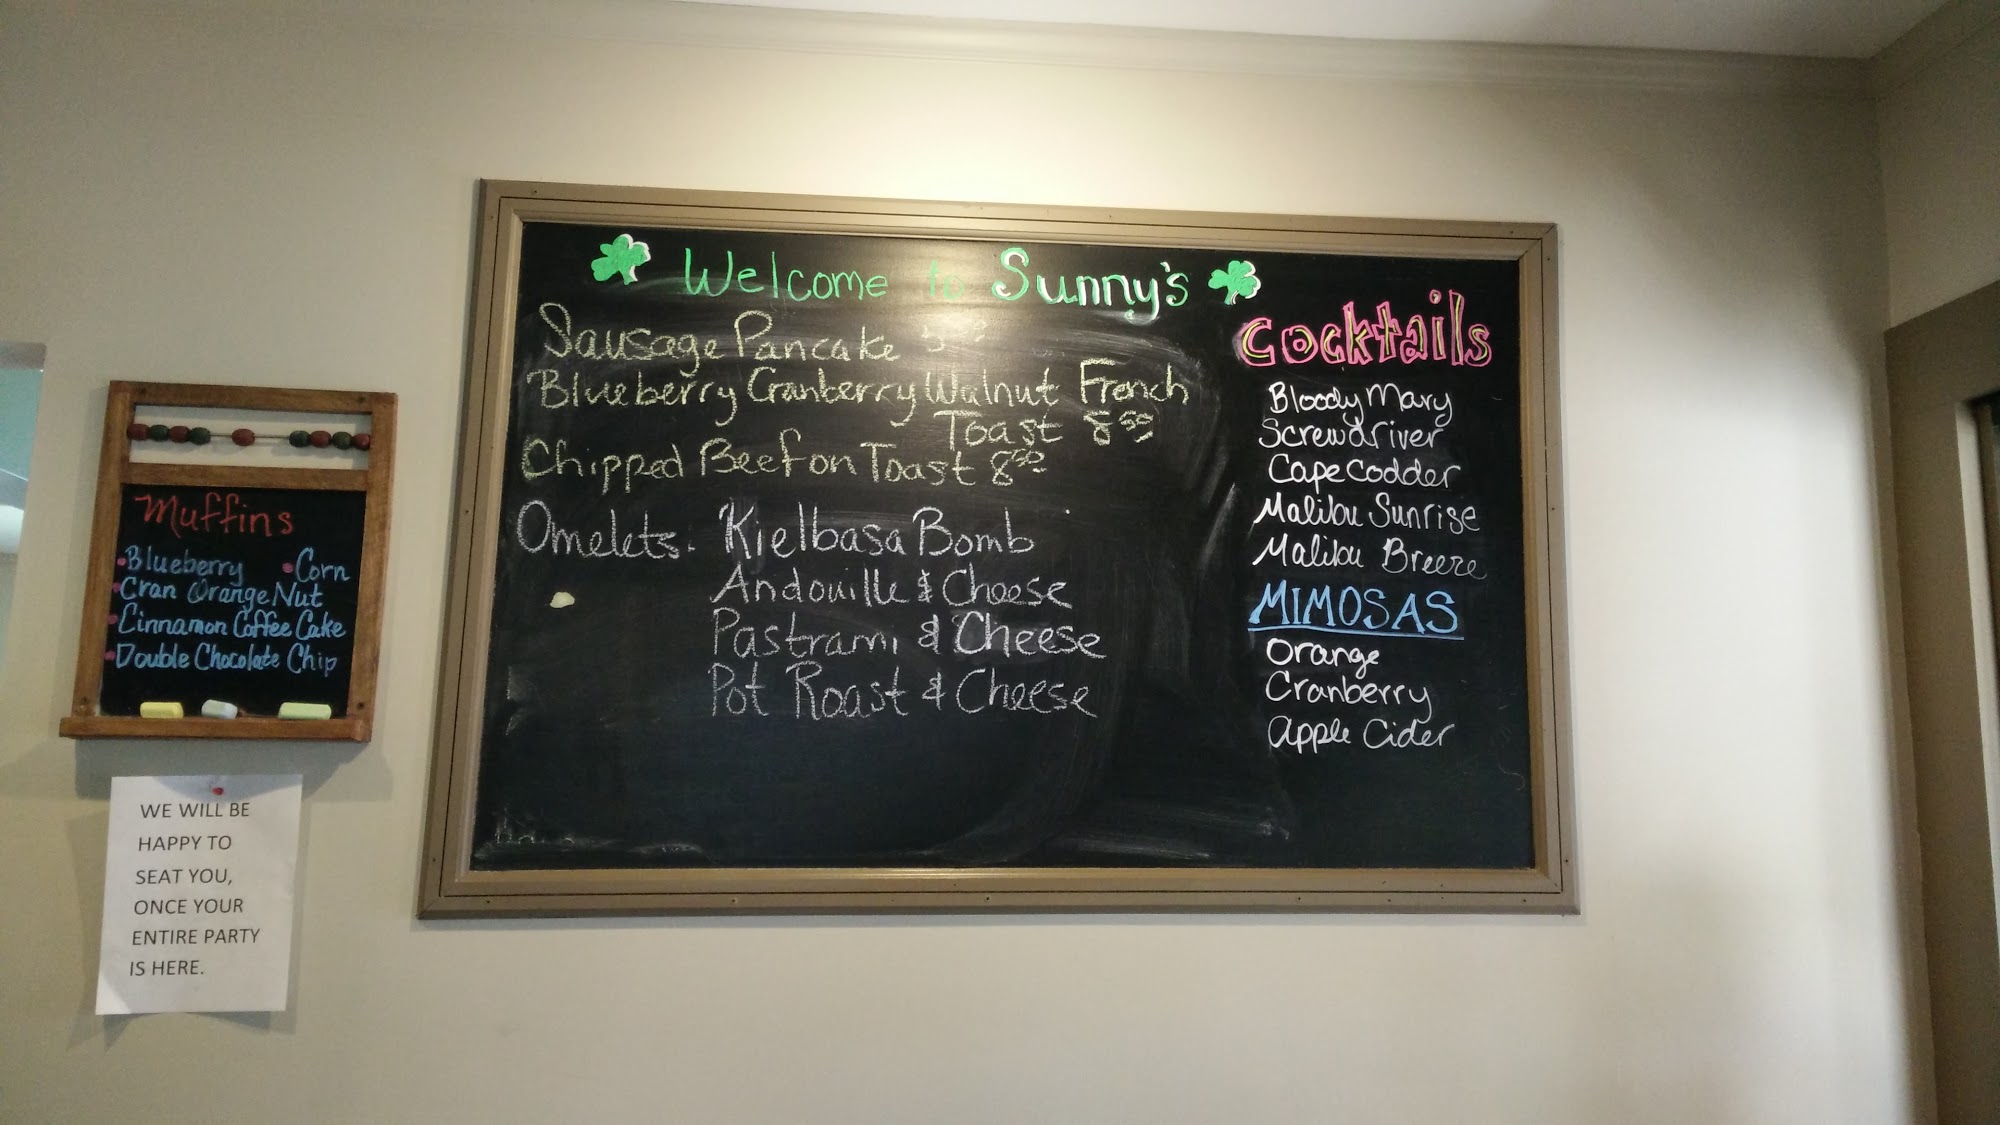 Welcome to Sunny's
Sausage Pancake
Blueberry Cranberry Walnut French
Toast 8
Chipped Beef on Toast 8
Omelets. Kielbasa Bomb
Andouille & Cheese
Pastrami & Cheese
Pot Roast & Cheese
Cocktails
Bloody Mary
Screwdriver
Cape Codder
Malibu Sunrise
Malibu Breeze
MIMOSAS
Orange
Cranberry
Apple Cider
Muffins
Blueberry Corn
Cran Orange Nut
Cinnamon Coffee Cake
Double Chocolate Chip
WE WILL BE
HAPPY TO
SEAT YOU,
ONCE YOUR
ENTIRE PARTY
IS HERE.